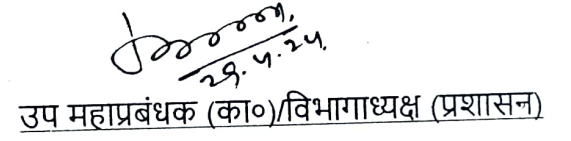 29.4.24
उप महाप्रबंधक (का०)/विभागाध्यक्ष (प्रशासन)